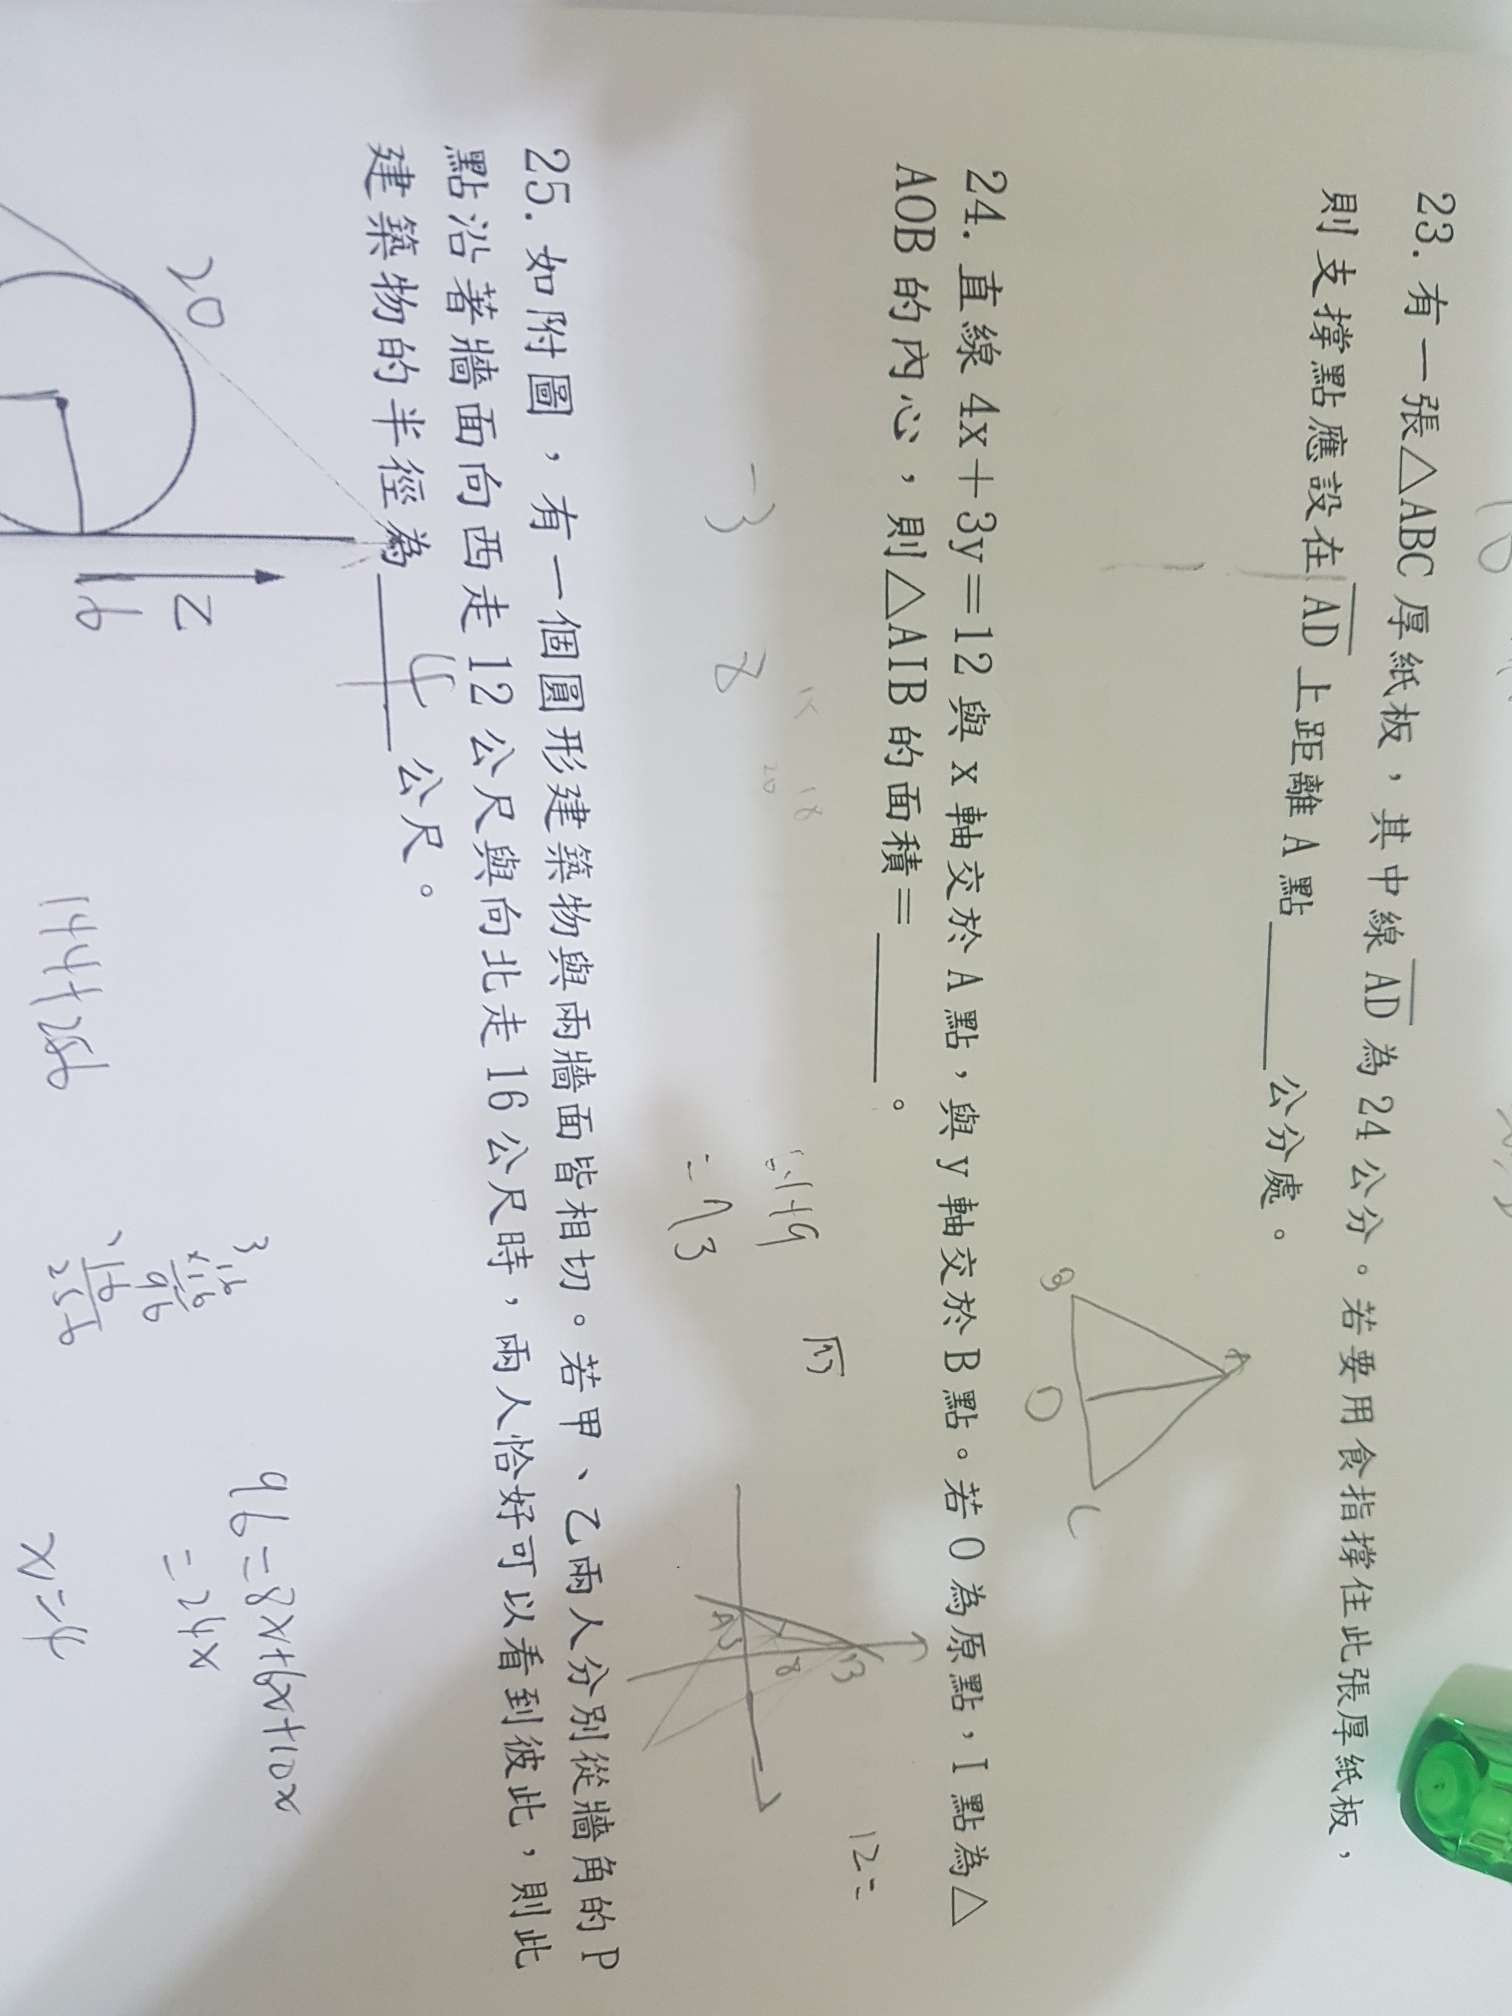 23. 有一張△ABC 厚紙板，其中線 AD 為 24 公分。若要用食指撐住此張厚紙板，
則支撐點應設在 AD 上距離 A 點______公分處。
A
B
D
C
24. 直線 4x＋3y＝12 與 x 軸交於 A 點，與 y 軸交於 B 點。若 O 為原點，I 點為△
AOB 的內心，則△AIB 的面積＝______。
12=
-3
8
64+9
=73
B
8
A
3
25. 如附圖，有一個圓形建築物與兩牆面皆相切。若甲、乙兩人分別從牆角的 P
點沿著牆面向西走 12 公尺與向北走 16 公尺時，兩人恰好可以看到彼此，則此
建築物的半徑為___4___公尺。
20
乙
16
144+256
3
16
×16
96
16
256
96=8x+6x+10x
=24x
x=4